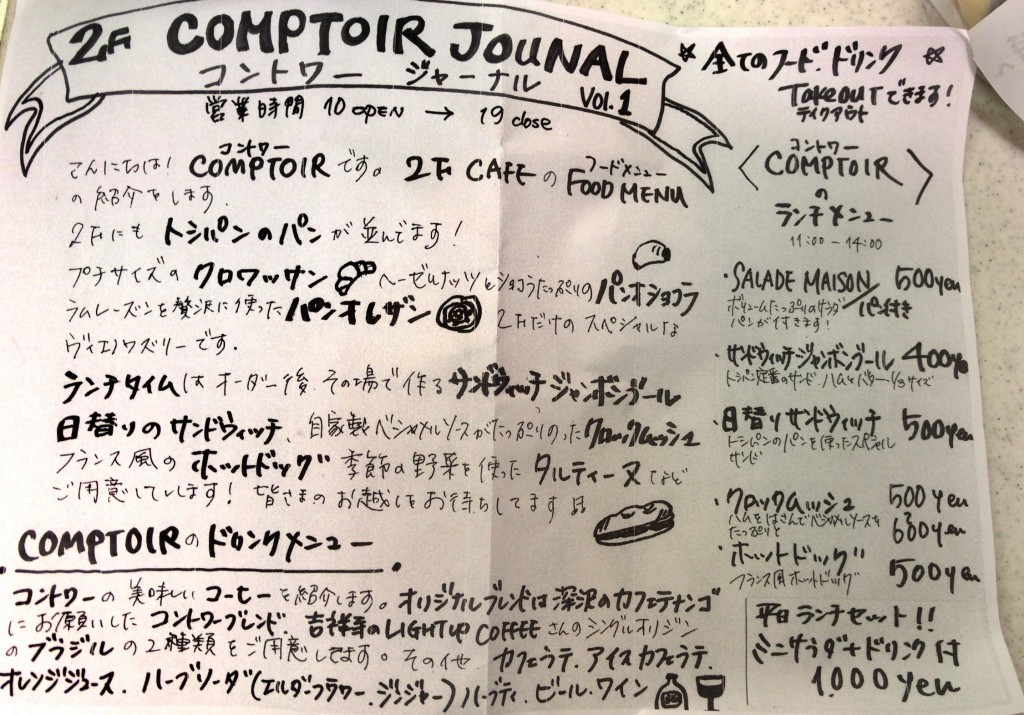 2F COMPTOIR JOUNAL
コントワー ジャーナル Vol.1
営業時間 10 OPEN → 19 close
こんにちは! COMPTOIR コントワー です。2F CAFEの FOOD MENU フードメニュー
の紹介をします。
2Fにも トシパンのパンが並んでます!
プチサイズの クロワッサン ヘーゼルナッツとショコラたっぷりの パンオショコラ
ラムレーズンを贅沢に使った パンオレザン 2Fだけの スペシャルな
ヴィエノワズリーです。
ランチタイムは オーダー後 その場で作る サンドウィッチ ジャンボンブール
日替りのサンドウィッチ、自家製ベシャメルソースがたっぷりのった クロックムッシュ
フランス風の ホットドッグ 季節の野菜を使った タルティーヌなど
ご用意してします! 皆さまの お越しをお待ちしてます
COMPTOIRのドリンクメニュー
コントワーの 美味しい コーヒーを紹介します。オリジナルブレンドは 深沢のカフェテナンゴ
にお願いした コントワーブレンド、吉祥寺のLIGHT UP COFFEEさんのシングルオリジン
のブラジルの2種類をご用意してます。その他 カフェラテ、アイスカフェラテ、
オレンジジュース、ハーブソーダ(エルダーフラワー、ジンジャー) ハーブティ、ビール・ワイン
☆ 全てのフード・ドリンク ☆
Takeout できます!
テイクアウト
コントワー
〈 COMPTOIR 〉
の
ランチメニュー
11:00 - 14:00
・SALADE MAISON / パン付き 500yen
ボリュームたっぷりのサラダ
パンが付きます!
・サンドウィッチジャンボンブール 400yen
トシパン定番のサンド。ハムとバター 1/3サイズ
・日替りサンドウィッチ 500yen
トシパンのパンを使ったスペシャル
サンド
・クロックムッシュ 500yen
ハムをはさんでベシャメルソースを
たっぷりと 600yen
・ホットドッグ 500yen
フランス風ホットドッグ
平日 ランチセット!!
ミニサラダ+ドリンク付
1,000yen